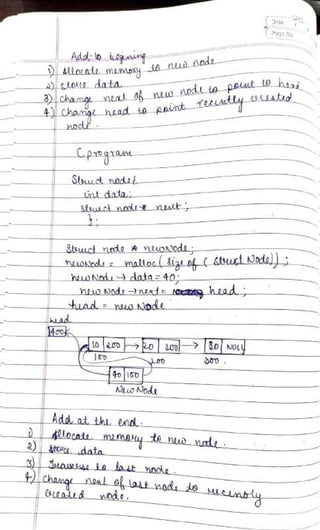 Date
Page No.
Add to begining
1) Allocate memory to new node
2) store data
3) change next of new node to point to head
4) change head to point recently created
node.
C program
Struct node{
int data;
struct node * next;
};
Struct node * newNode;
newNode = malloc (size of (Struct Node));
newNode → data = 40;
new Node → next = head;
head = new Node
head
400
10 200 → 20 300 → 30 NULL
100 200 300.
40 100
New Node
Add at the end.
1) Allocate memory to new node.
2) store data
3) Traverse to last node.
4) change next of last node to recently
created node.